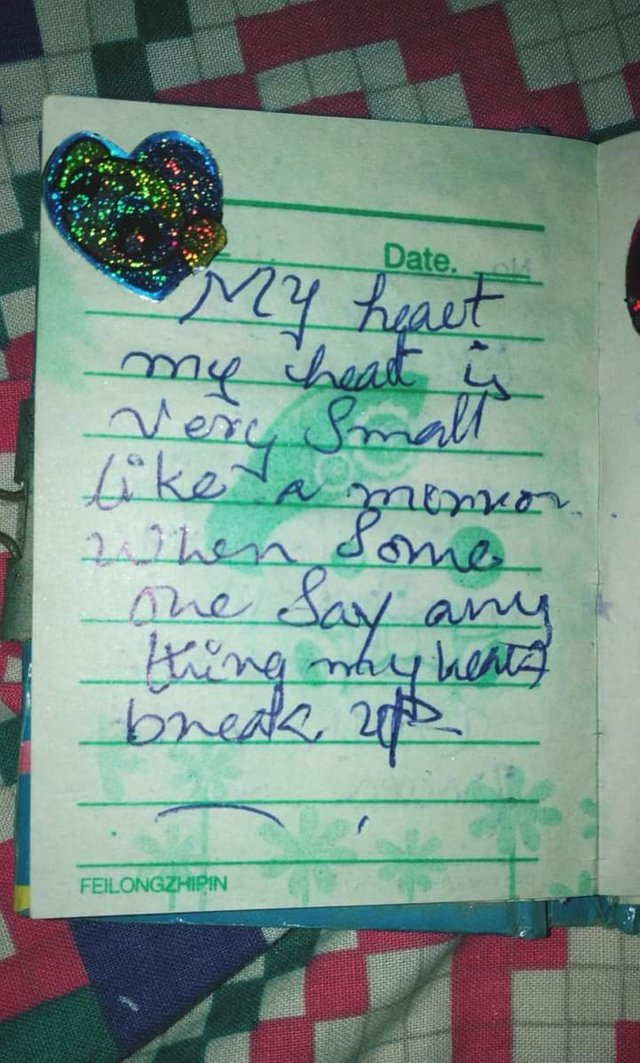 Date. No
My heart
my heat is
very Small
like a
When Some
one Say any
thing my heart
break up
FEILONGZHIPIN